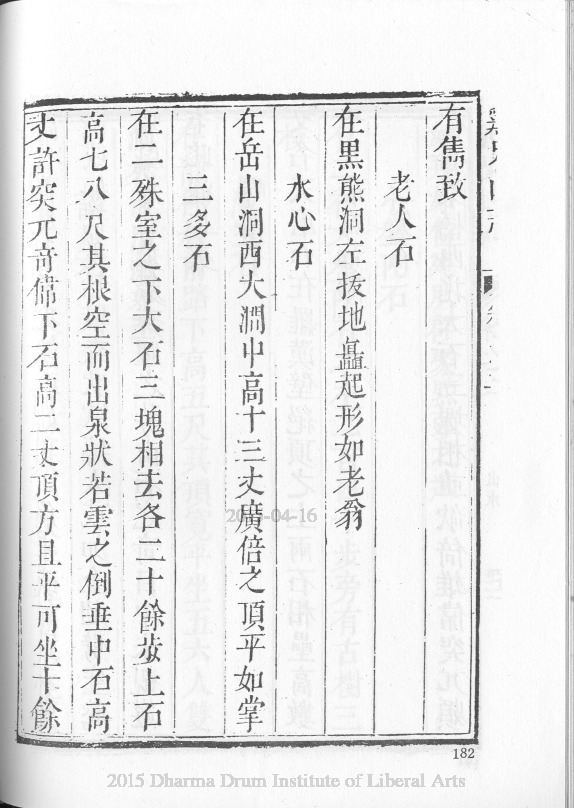 有雋致
老人石
在黑熊洞左拔地矗起形如老翁
水心石
在岳山洞西大澗中高十三丈廣倍之頂平如掌
三多石
在二殊室之下大石三塊相去各二十餘步上石
高七八尺其根空而出泉狀若雲之倒垂中石高
丈許突兀奇偉下石高二丈頂方且平可坐十餘
182
2015-04-16
2015 Dharma Drum Institute of Liberal Arts